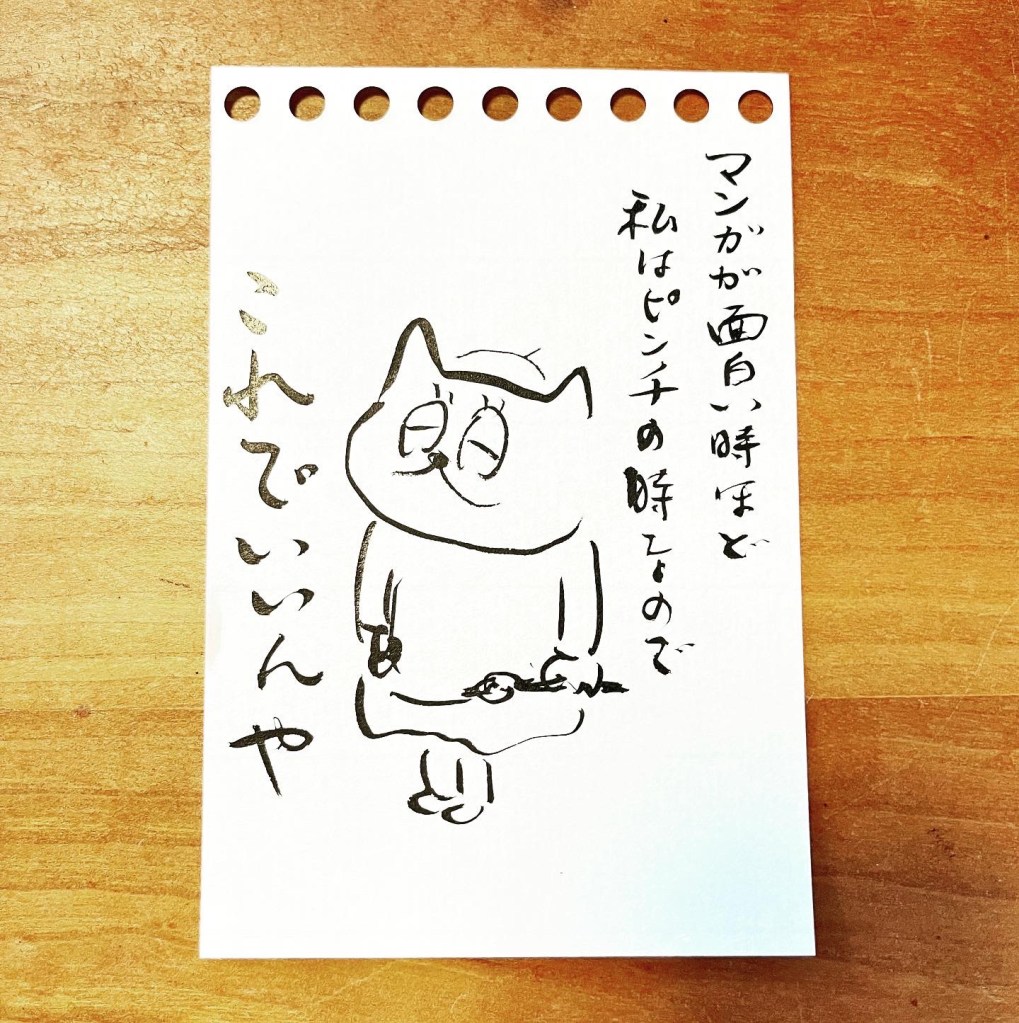 マンガが面白い時ほど
私はピンチの時なので
これでいいんや